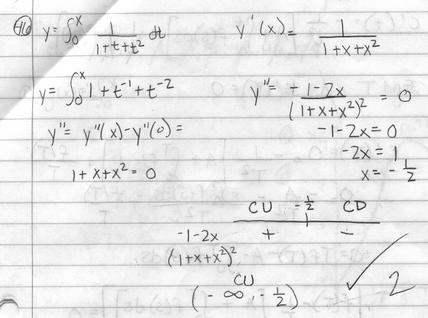 46 y = ∫₀ˣ 1/(1+t+t²) dt
y'(x) = 1/(1+x+x²)
y = ∫₀ˣ 1+t⁻¹+t⁻²
y'' = (-1-2x)/(1+x+x²)² = 0
y'' = y''(x) - y''(0) =
-1-2x = 0
-2x = 1
1+x+x² = 0
x = -1/2
CU -1/2 CD
-1-2x + -
(1+x+x²)²
CU
(-∞, -1/2) ✓ 2